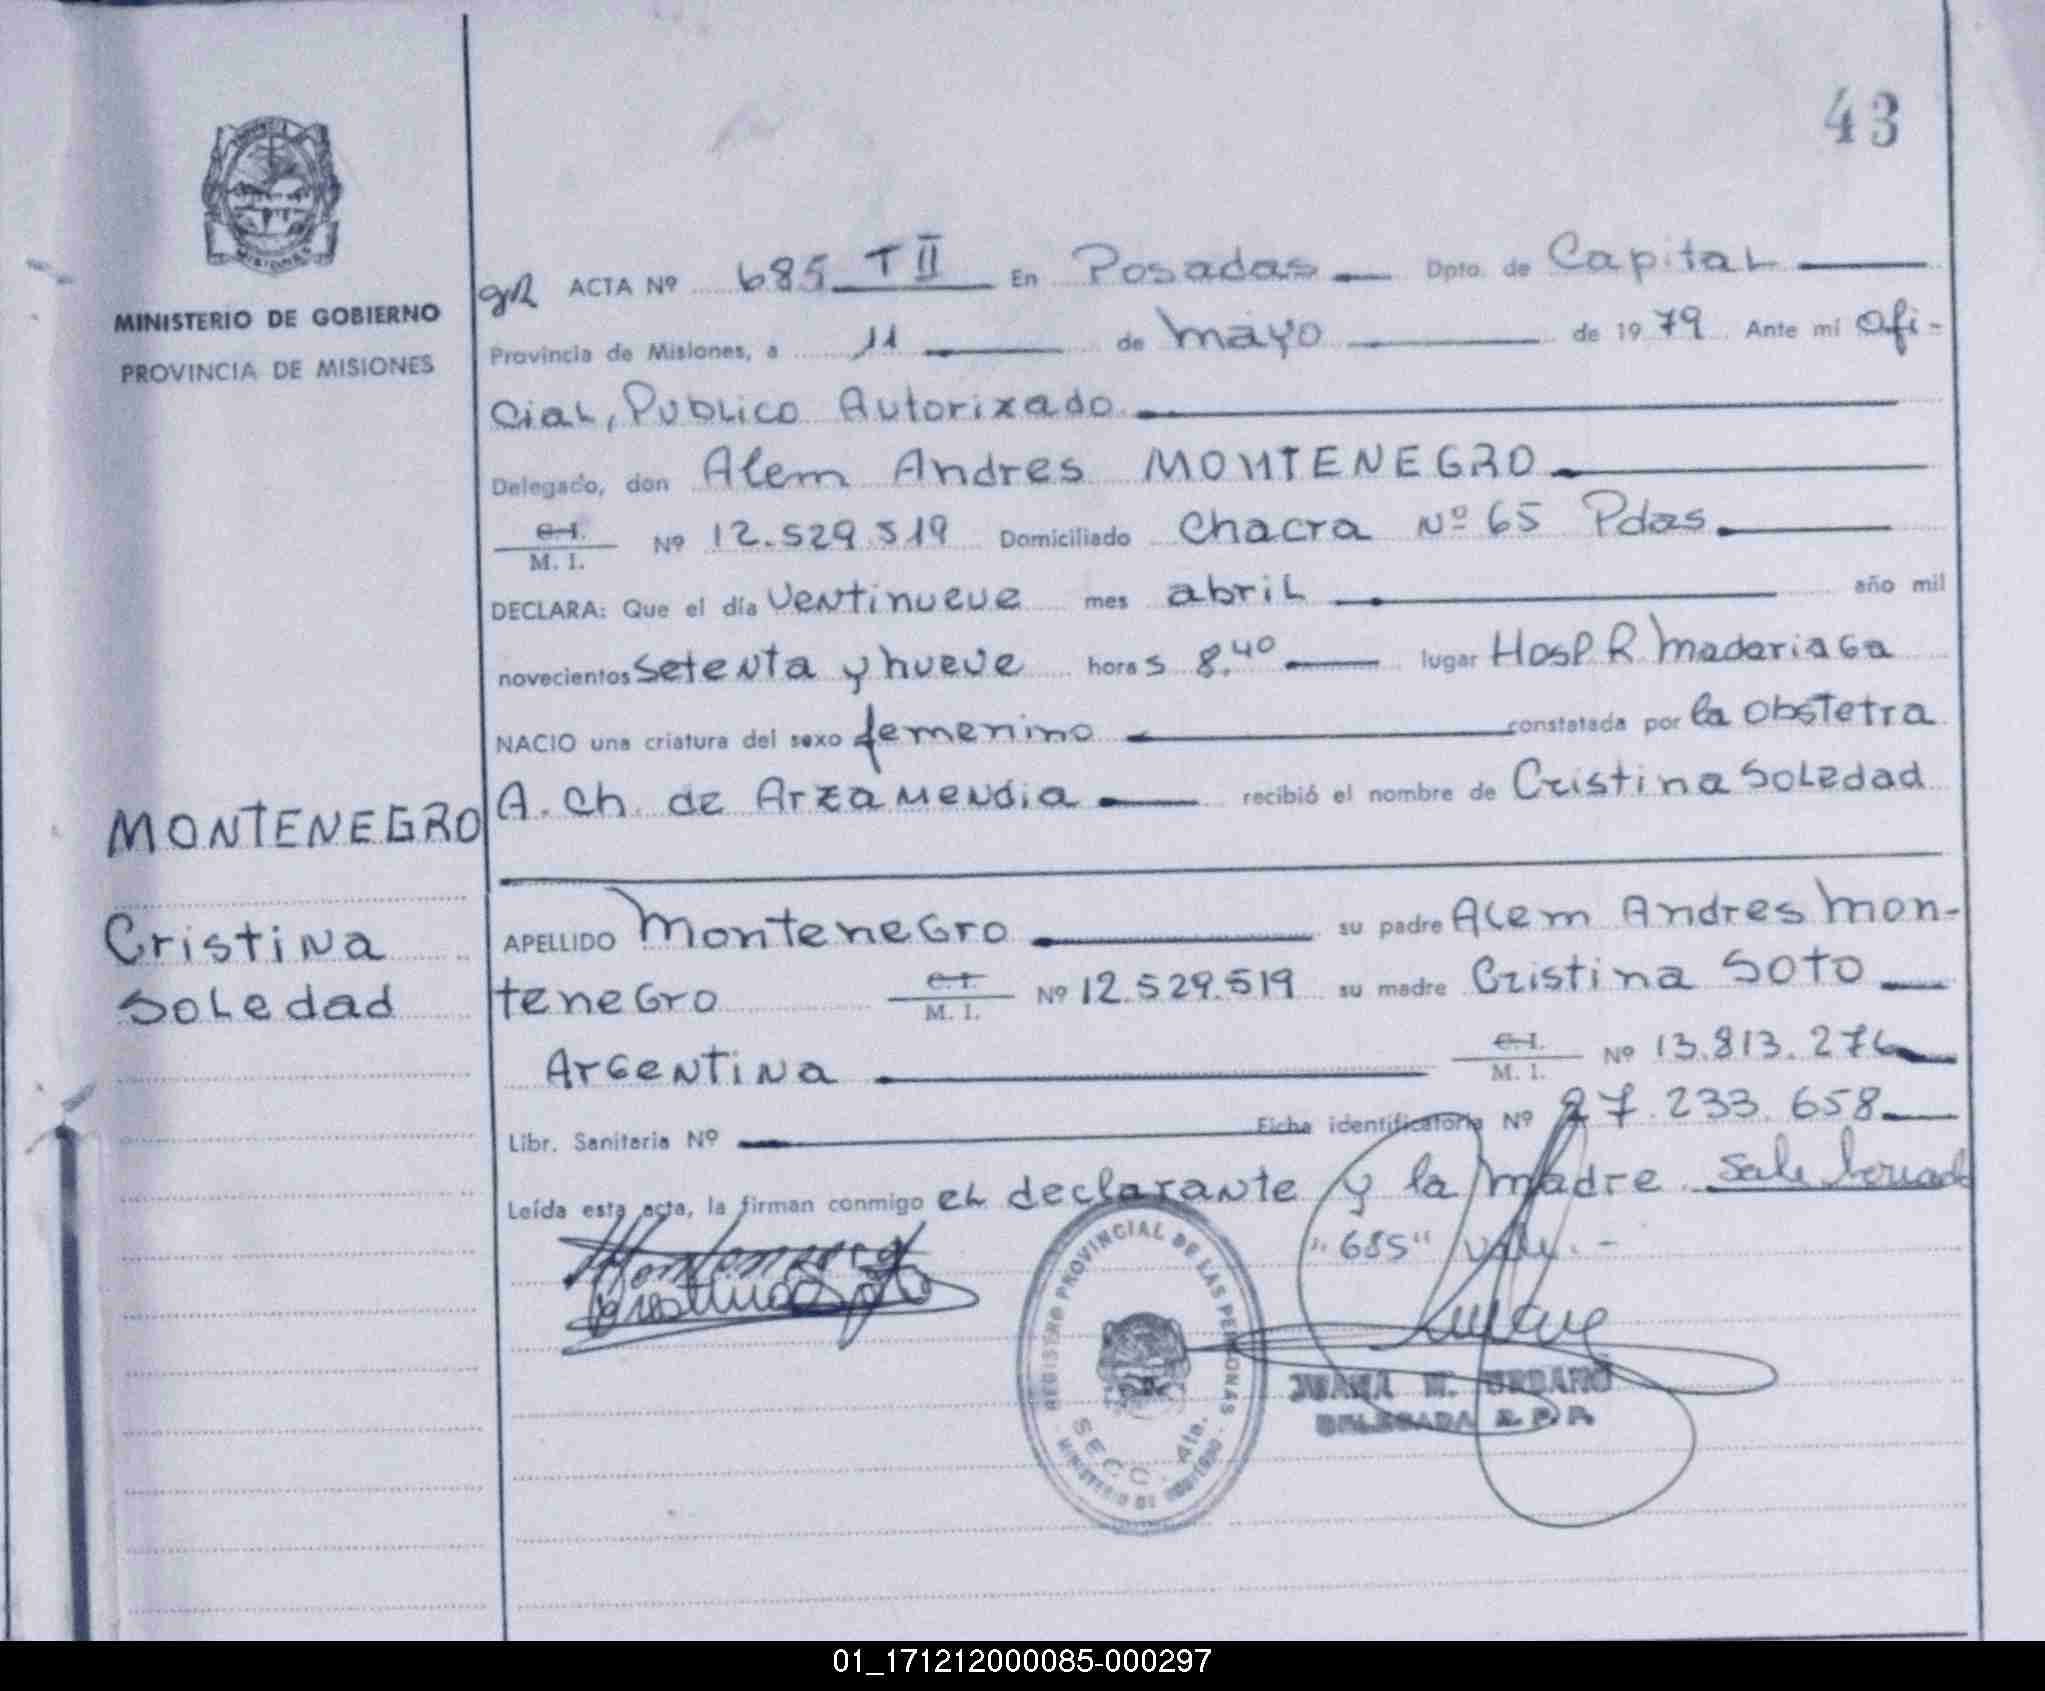 43
MINISTERIO DE GOBIERNO
PROVINCIA DE MISIONES
ACTA Nº 685 T II En Posadas Dpto. de Capital
Provincia de Misiones, a 11 de mayo de 1979 Ante mi Ofi-
cial, Publico Autorizado
Delegado, don Alem Andres MONTENEGRO
C.I.
M. I. Nº 12.529.519 Domiciliado Chacra Nº 65 Pdas
DECLARA: Que el día Ventinueve mes abril año mil
novecientos setenta y nueve horas 8.40 lugar Hosp R Madariaga
NACIO una criatura del sexo femenino constatada por la Obstetra
A. Ch. de Arzamendia recibió el nombre de Cristina Soledad
MONTENEGRO
Cristina
Soledad
APELLIDO Montenegro su padre Alem Andres Mon-
tenegro C.I.
M. I. Nº 12.529.519 su madre Cristina SOTO
Argentina C.I.
M. I. Nº 13.813.276
Libr. Sanitaria Nº Ficha identificatoria Nº 27.233.658
Leída esta acta, la firman conmigo el declarante y la madre
"685" vale.-
Cristina Soto
REGISTRO PROVINCIAL DE LAS PERSONAS
SECC. 4ta.
MINISTERIO DE GOBIERNO
JUANA M. URBANO
DELEGADA R. P. P.
01_171212000085-000297